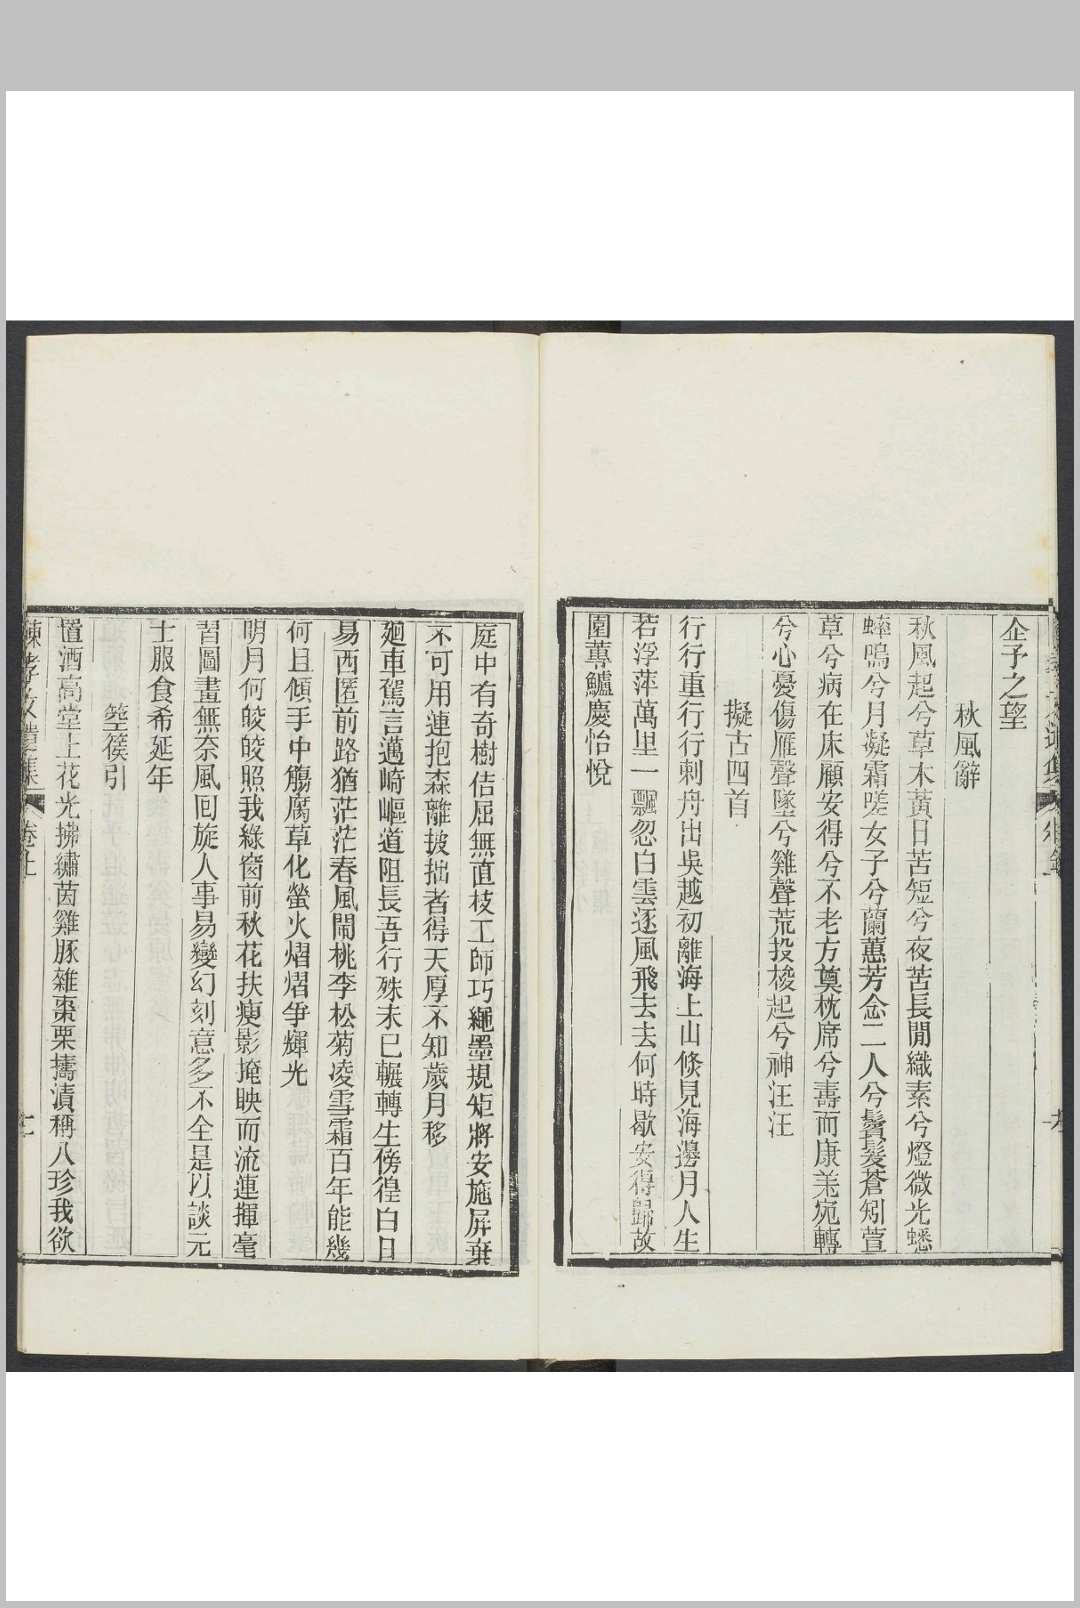 企予之望
秋風辭
秋風起兮草木黃日苦短兮夜苦長閒織素兮燈微光蟋
蟀鳴兮月凝霜嗟女子兮蘭蕙芳念二人兮鬢髮蒼矧萱
草兮病在床願安得兮不老方奠枕席兮壽而康羌宛轉
兮心憂傷雁聲墜兮雞聲荒投梭起兮神汪汪
擬古四首
行行重行行刺舟出吳越初離海上山倏見海邊月人生
若浮萍萬里一飄忽白雲逐風飛去去何時歇安得歸故
園蓴鱸慶怡悅
庭中有奇樹佶屈無直枝工師巧繩墨規矩將安施屏棄
不可用連抱森離披拙者得天厚不知歲月移
廻車駕言邁崎嶇道阻長吾行殊未已輾轉生傍徨白日
易西匿前路猶茫茫春風鬧桃李松菊凌雪霜百年能幾
何且傾手中觴腐草化螢火熠熠爭輝光
明月何皎皎照我綠窗前秋花扶瘦影掩映而流連揮毫
習圖畫無奈風回旋人事易變幻刻意多不全是以談元
士服食希延年
箜篌引
置酒高堂上花光拂繡茵雞豚雜棗栗擣漬稱八珍我欲